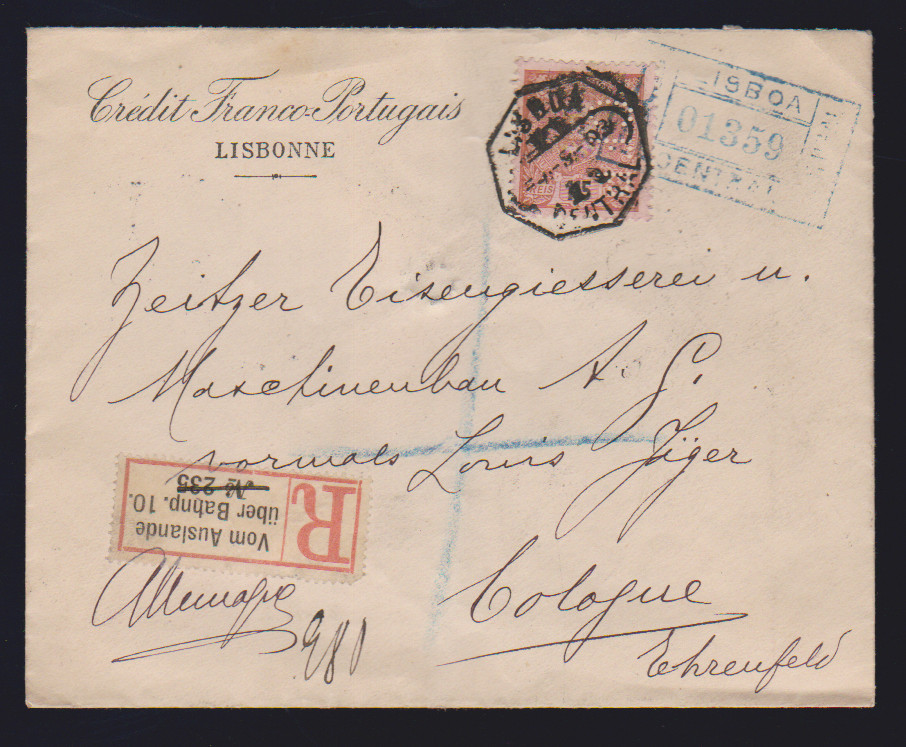 Crédit Franco-Portugais
LISBONNE
LISBOA
CENTRAL
REIS
LISBOA
01359
CENTRAL
Zeitzer Eisengiesserei u.
Maschinenbau A G.
vormals Louis Jäger
Cologne
Ehrenfeld
Allemagne
R
Vom Auslande
über Bahnp. 10.
№ 235
980